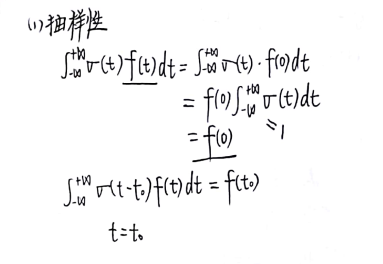 (1) 抽样性
∫_{-∞}^{+∞} σ(t) f(t) dt = ∫_{-∞}^{+∞} σ(t) · f(0) dt
= f(0) ∫_{-∞}^{+∞} σ(t) dt
= f(0) =1
∫_{-∞}^{+∞} σ(t-t₀) f(t) dt = f(t₀)
t=t₀